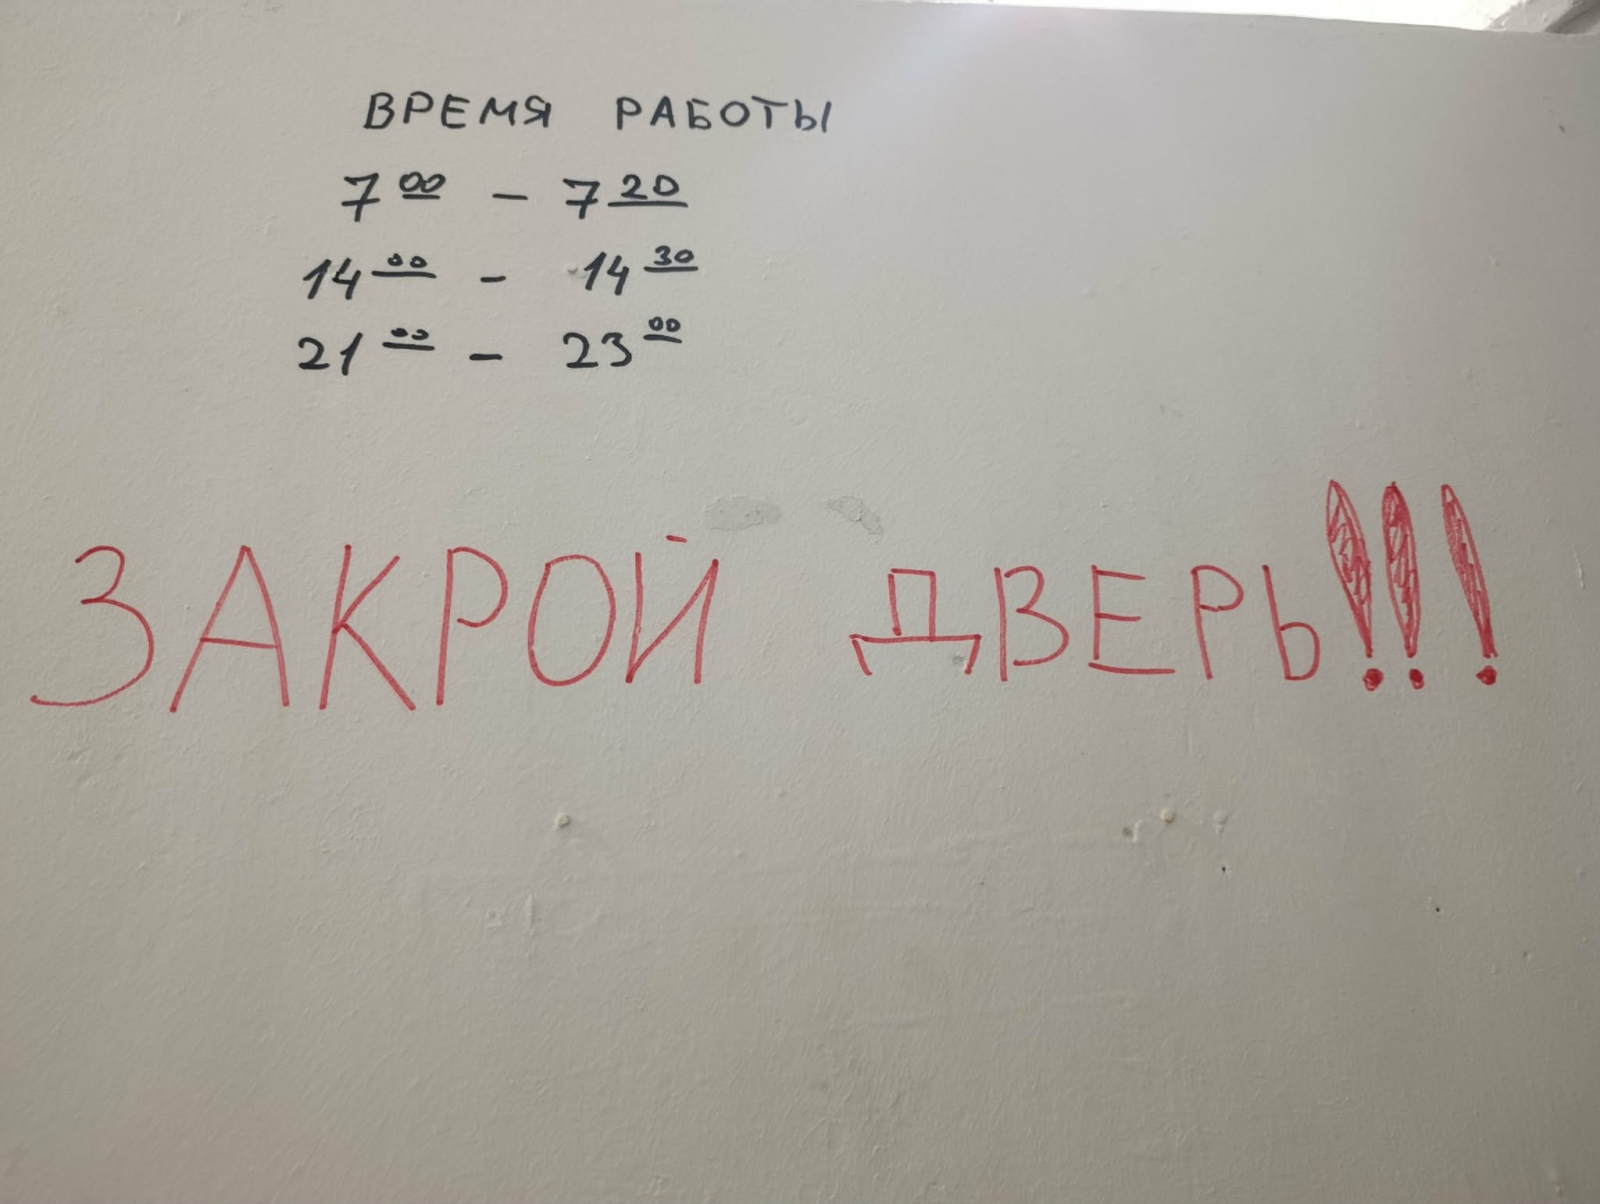 ВРЕМЯ РАБОТЫ
7 00 - 7 20
14 00 - 14 30
21 00 - 23 00
ЗАКРОЙ ДВЕРЬ!!!